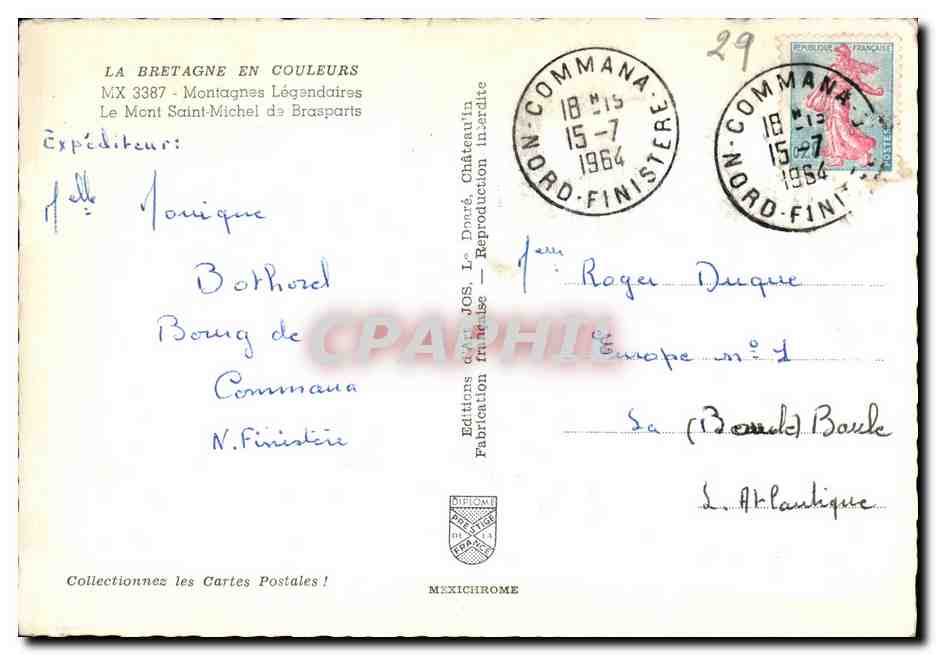 LA BRETAGNE EN COULEURS
MX 3387 - Montagnes Légendaires
Le Mont Saint-Michel de Brasparts
Expéditeur:
Melle Monique
Bothorel
Bourg de
Commana
N. Finistère
Collectionnez les Cartes Postales !
Editions d'Art JOS, Le Doaré, Châteaulin
Fabrication française — Reproduction interdite
DIPLOME
PRESTIGE
DE LA
FRANCE
MEXICHROME
CPAPHIL
29
REPUBLIQUE FRANÇAISE
POSTES
COMMANA
18 H 15
15-7
1964
NORD-FINISTERE
COMMANA
18 H 15
15-7
1964
NORD-FINIS
Roger Duque
Europe n° 1
La (Baule) Baule
L. Atlantique